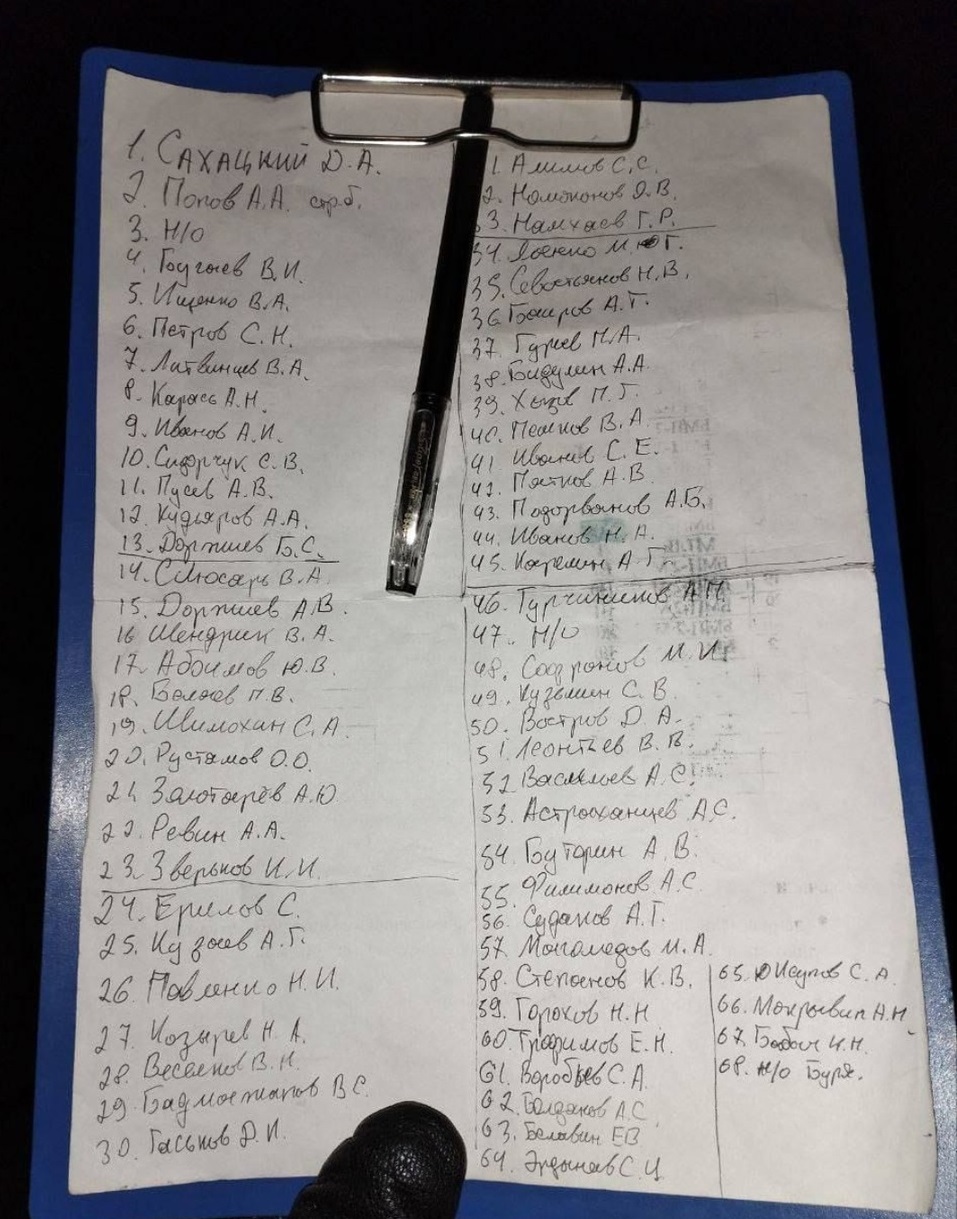 1. САХАЦКИЙ Д.А.
2. Попов А.А. стр.б.
3. Н/О
4. Бугаев В.И.
5. Ищенко В.А.
6. Петров С.Н.
7. Литвинцев В.А.
8. Карась А.Н.
9. Иванов А.И.
10. Сидорчук С.В.
11. Гусев А.В.
12. Кудьяров А.А.
13. Доржиев Б.С.
14. Слюсарь В.А.
15. Доржиев А.В.
16 Шендрик В.А.
17. Абрамов Ю.В.
18. Беляев П.В.
19. Шимохин С.А.
20. Рустамов О.О.
21. Золотарёв А.Ю
22. Ревин А.А.
23. Зверьков И.И.
24. Ермлов С.
25. Кузаев А.Г.
26. Павленко Н.И.
27. Козырев Н.А.
28. Веселков В.Н.
29. Бадмажапов В.С.
30. Гаськов Д.И.
1. Алимов С.С.
2. Номоконов Э.В.
33. Намхаев Г.Р.
34. М.Ю Г.
35. Севостьянов Н.В.
36 Баиров А.Т.
37. Гурьев Н.А.
38. Бидулин А.А.
39. П.Г.
40. Пешков В.А.
41 Иванов С.Е.
42. Пятков А.В
43. Подорванов А.Б.
44. Иванов Н.А.
45. Карелин А.Г.
46. А.Н
47. Н/О
48. Сафронов М.И.
49. Кузьмин С.В
50. Востров Д.А.
51. Леонтьев В.В.
52. Васильев А.С.
53. Астраханцев А.С.
54. Буторин А.В.
55. Филимонов А.С
56. Судаков А.Г.
57. Магомедов И.А.
58. Степанов К.В.
59. Горохов Н.Н
60. Трофимов Е.Н.
61. Воробьев С.А
62. Болданов А.С
63. Белавин ЕВ
64. Эрдынеев С.Ц.
65. Юсупов С.А
66. А.Н
67. Бабич И.Н.
68. Н/О Буря.